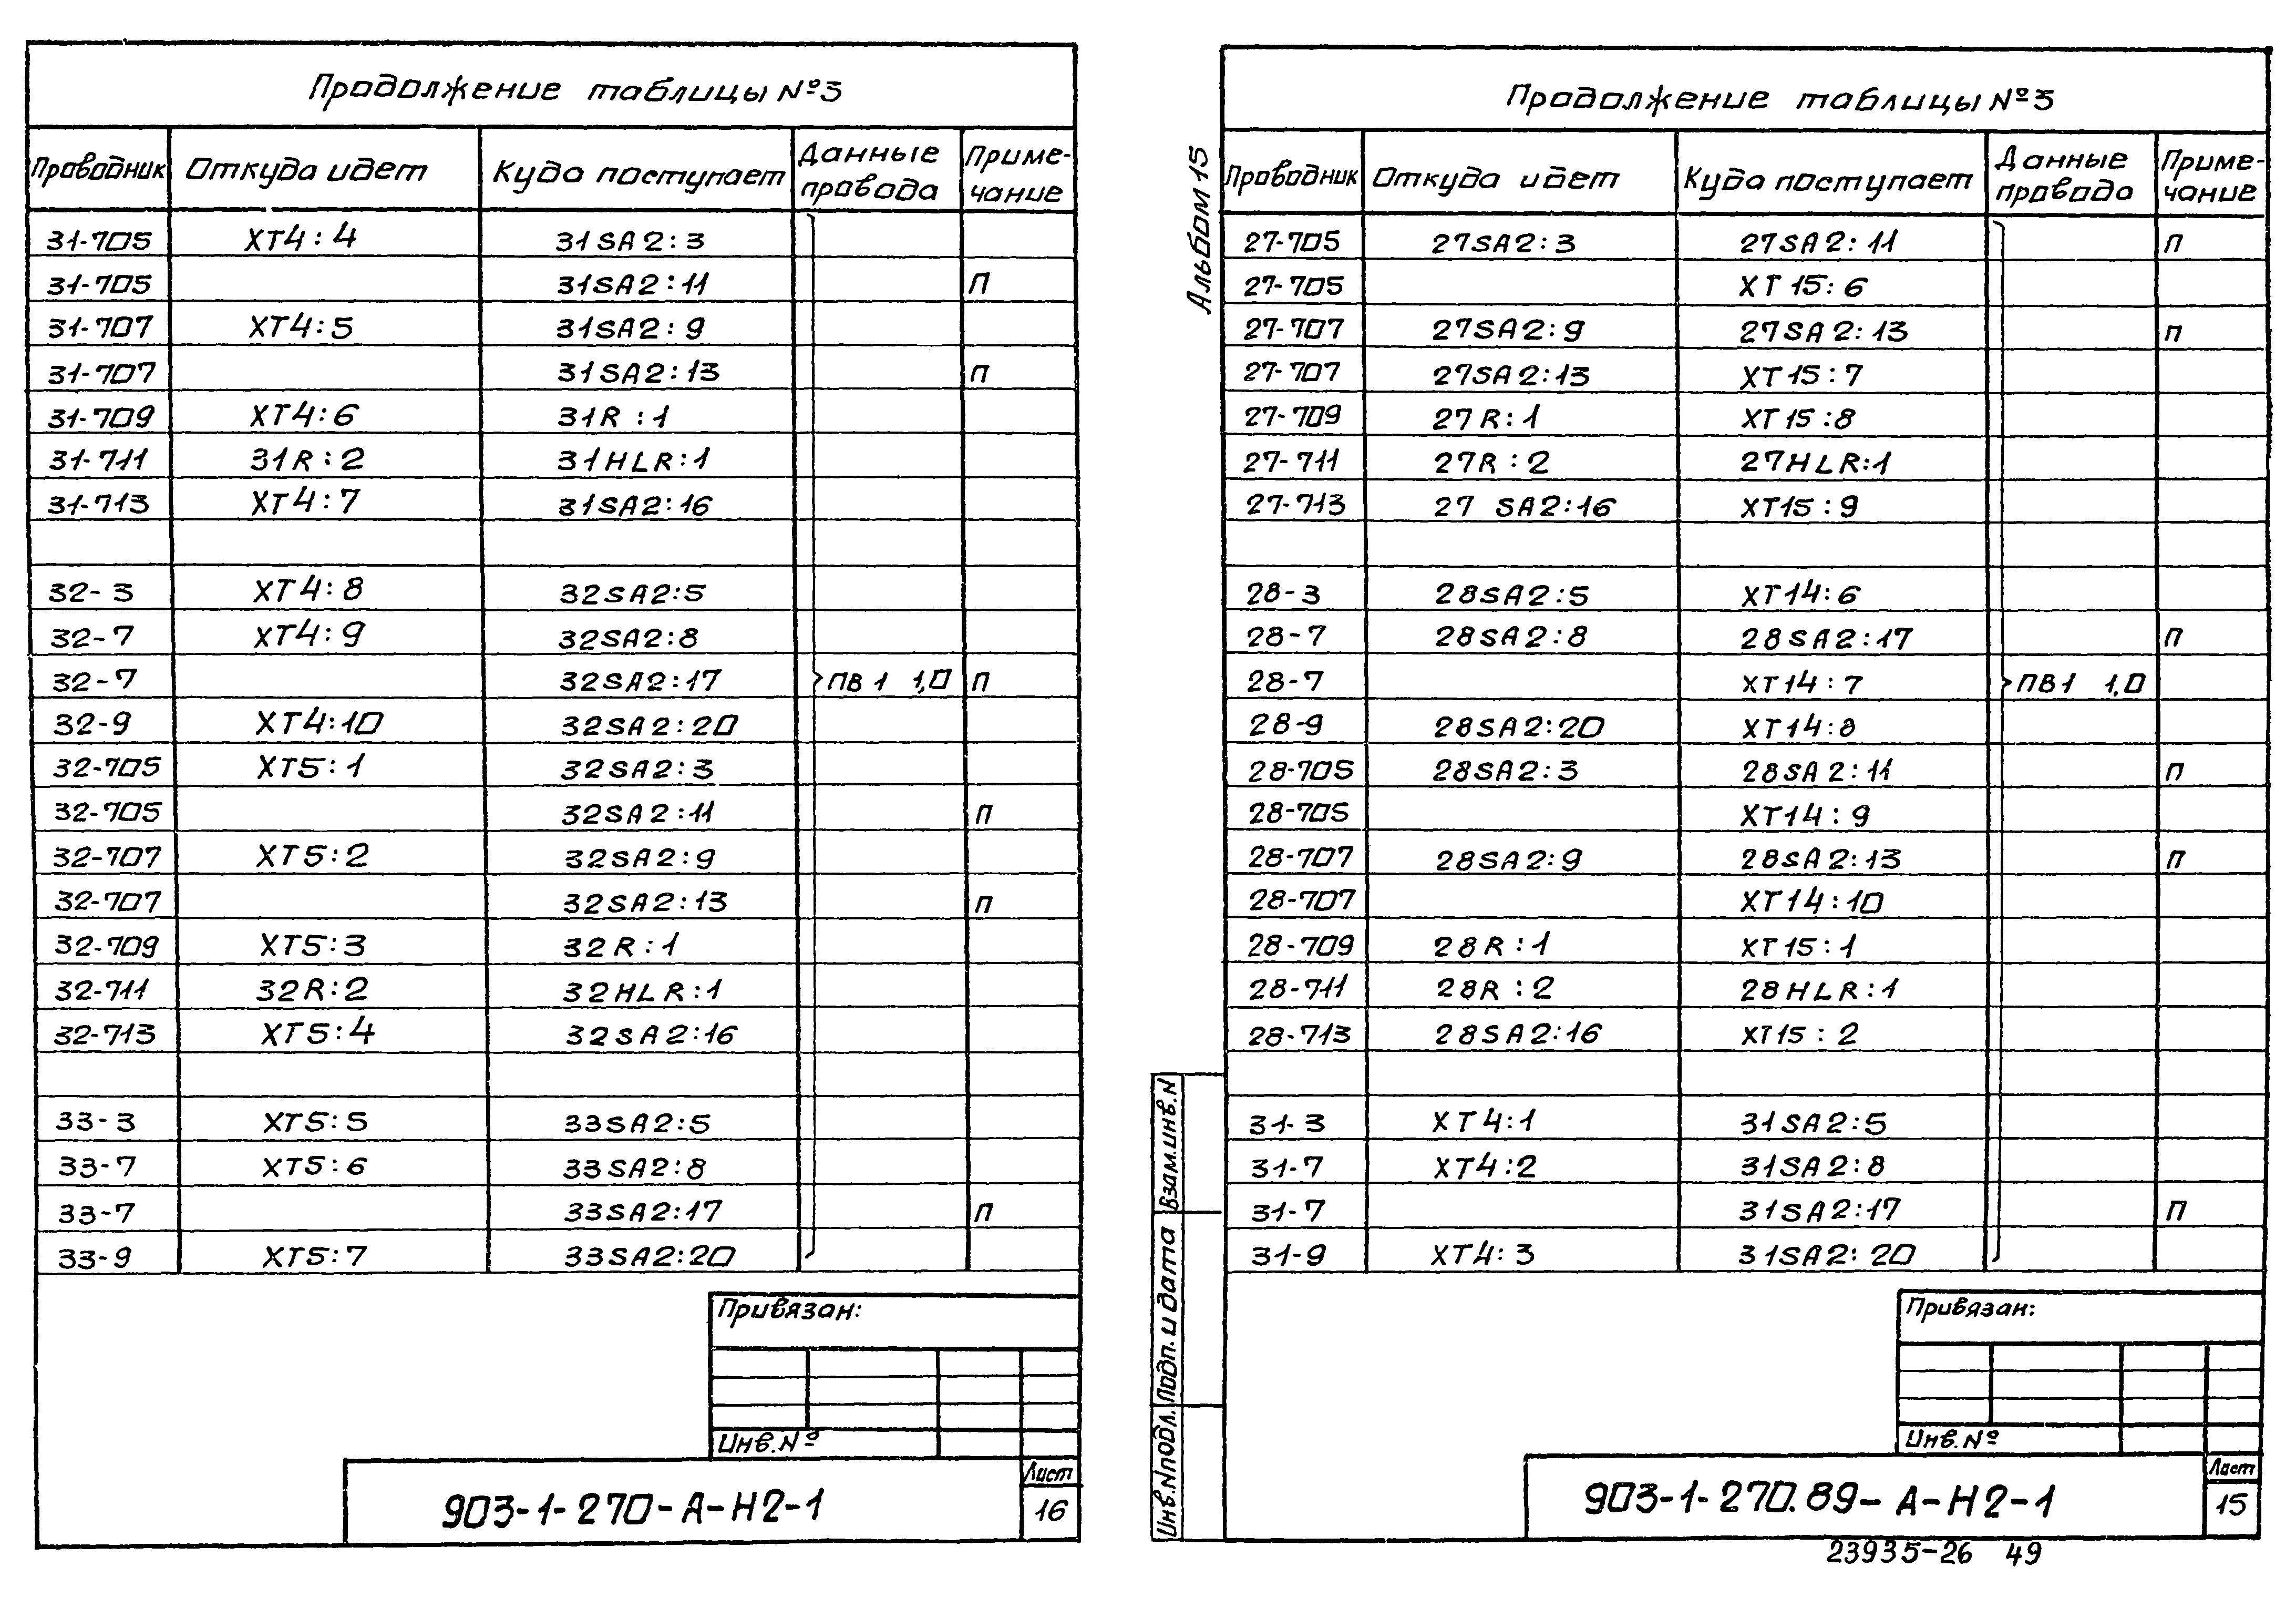 Продолжение таблицы №3
Проводник Откуда идет Куда поступает Данные провода Приме-чание
31-705 XT4:4 31SA2:3
31-705 31SA2:11 П
31-707 XT4:5 31SA2:9
31-707 31SA2:13 П
31-709 XT4:6 31R:1
31-711 31R:2 31HLR:1
31-713 XT4:7 31SA2:16
32-3 XT4:8 32SA2:5
32-7 XT4:9 32SA2:8
32-7 32SA2:17 ПВ1 1,0 П
32-9 XT4:10 32SA2:20
32-705 XT5:1 32SA2:3
32-705 32SA2:11 П
32-707 XT5:2 32SA2:9
32-707 32SA2:13 П
32-709 XT5:3 32R:1
32-711 32R:2 32HLR:1
32-713 XT5:4 32SA2:16
33-3 XT5:5 33SA2:5
33-7 XT5:6 33SA2:8
33-7 33SA2:17 П
33-9 XT5:7 33SA2:20
Привязан:
Инв.№
903-1-270-А-Н2-1
Лист
16
Альбом 15
Продолжение таблицы №3
Проводник Откуда идет Куда поступает Данные провода Приме-чание
27-705 27SA2:3 27SA2:11 П
27-705 XT15:6
27-707 27SA2:9 27SA2:13 П
27-707 27SA2:13 XT15:7
27-709 27R:1 XT15:8
27-711 27R:2 27HLR:1
27-713 27 SA2:16 XT15:9
28-3 28SA2:5 XT14:6
28-7 28SA2:8 28SA2:17 П
28-7 XT14:7 ПВ1 1,0
28-9 28SA2:20 XT14:8
28-705 28SA2:3 28SA2:11 П
28-705 XT14:9
28-707 28SA2:9 28SA2:13 П
28-707 XT14:10
28-709 28R:1 XT15:1
28-711 28R:2 28HLR:1
28-713 28SA2:16 XT15:2
31-3 XT4:1 31SA2:5
31-7 XT4:2 31SA2:8
31-7 31SA2:17 П
31-9 XT4:3 31SA2:20
Взам.инв.N
Подп. и дата
Инв.Nподл.
Привязан:
Инв.№
903-1-270.89-А-Н2-1
Лист
15
23935-26 49